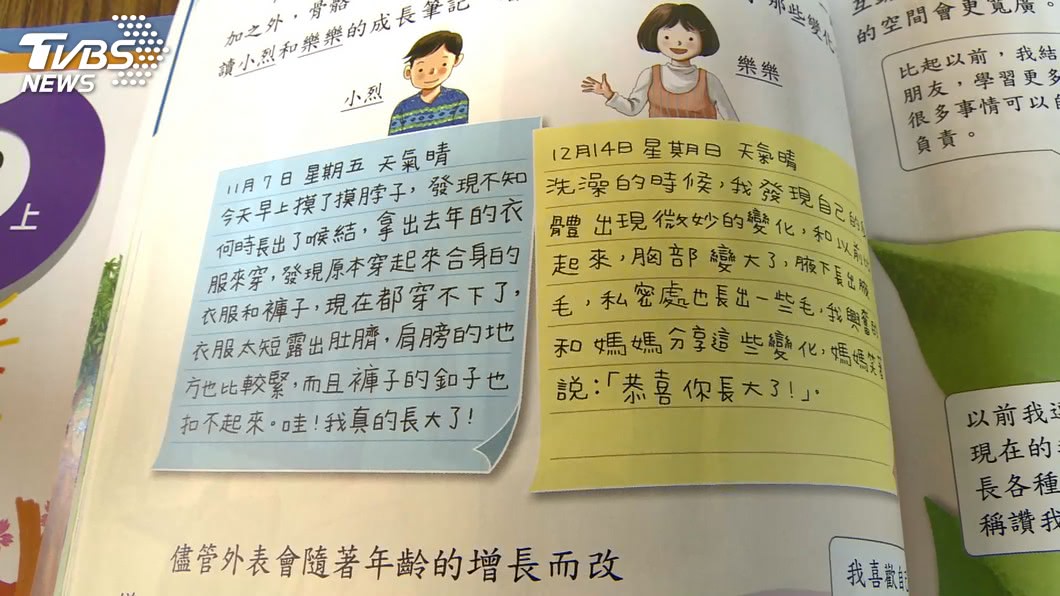 TVBS
NEWS
上
加之外，骨骼
的成長筆記
那些變化
讀小烈和樂樂
小烈
樂樂
11月7日 星期五 天氣晴
今天早上摸了摸脖子，發現不知
何時長出了喉結，拿出去年的衣
服來穿，發現原本穿起來合身的
衣服和褲子，現在都穿不下了，
衣服太短露出肚臍，肩膀的地
方也比較緊，而且褲子的釦子也
扣不起來。哇！我真的長大了！
12月14日 星期日 天氣晴
洗澡的時候，我發現自己的
體出現微妙的變化，和以前
起來，胸部變大了，腋下長出
毛，私密處也長出一些毛，我興奮
和媽媽分享這些變化，媽媽笑
說：「恭喜你長大了！」。
儘管外表會隨著年齡的增長而改
的空間會更寬廣。
比起以前，我結
朋友，學習更多
很多事情可以
負責。
以前我
現在的
長各種
稱讚我
我喜歡自